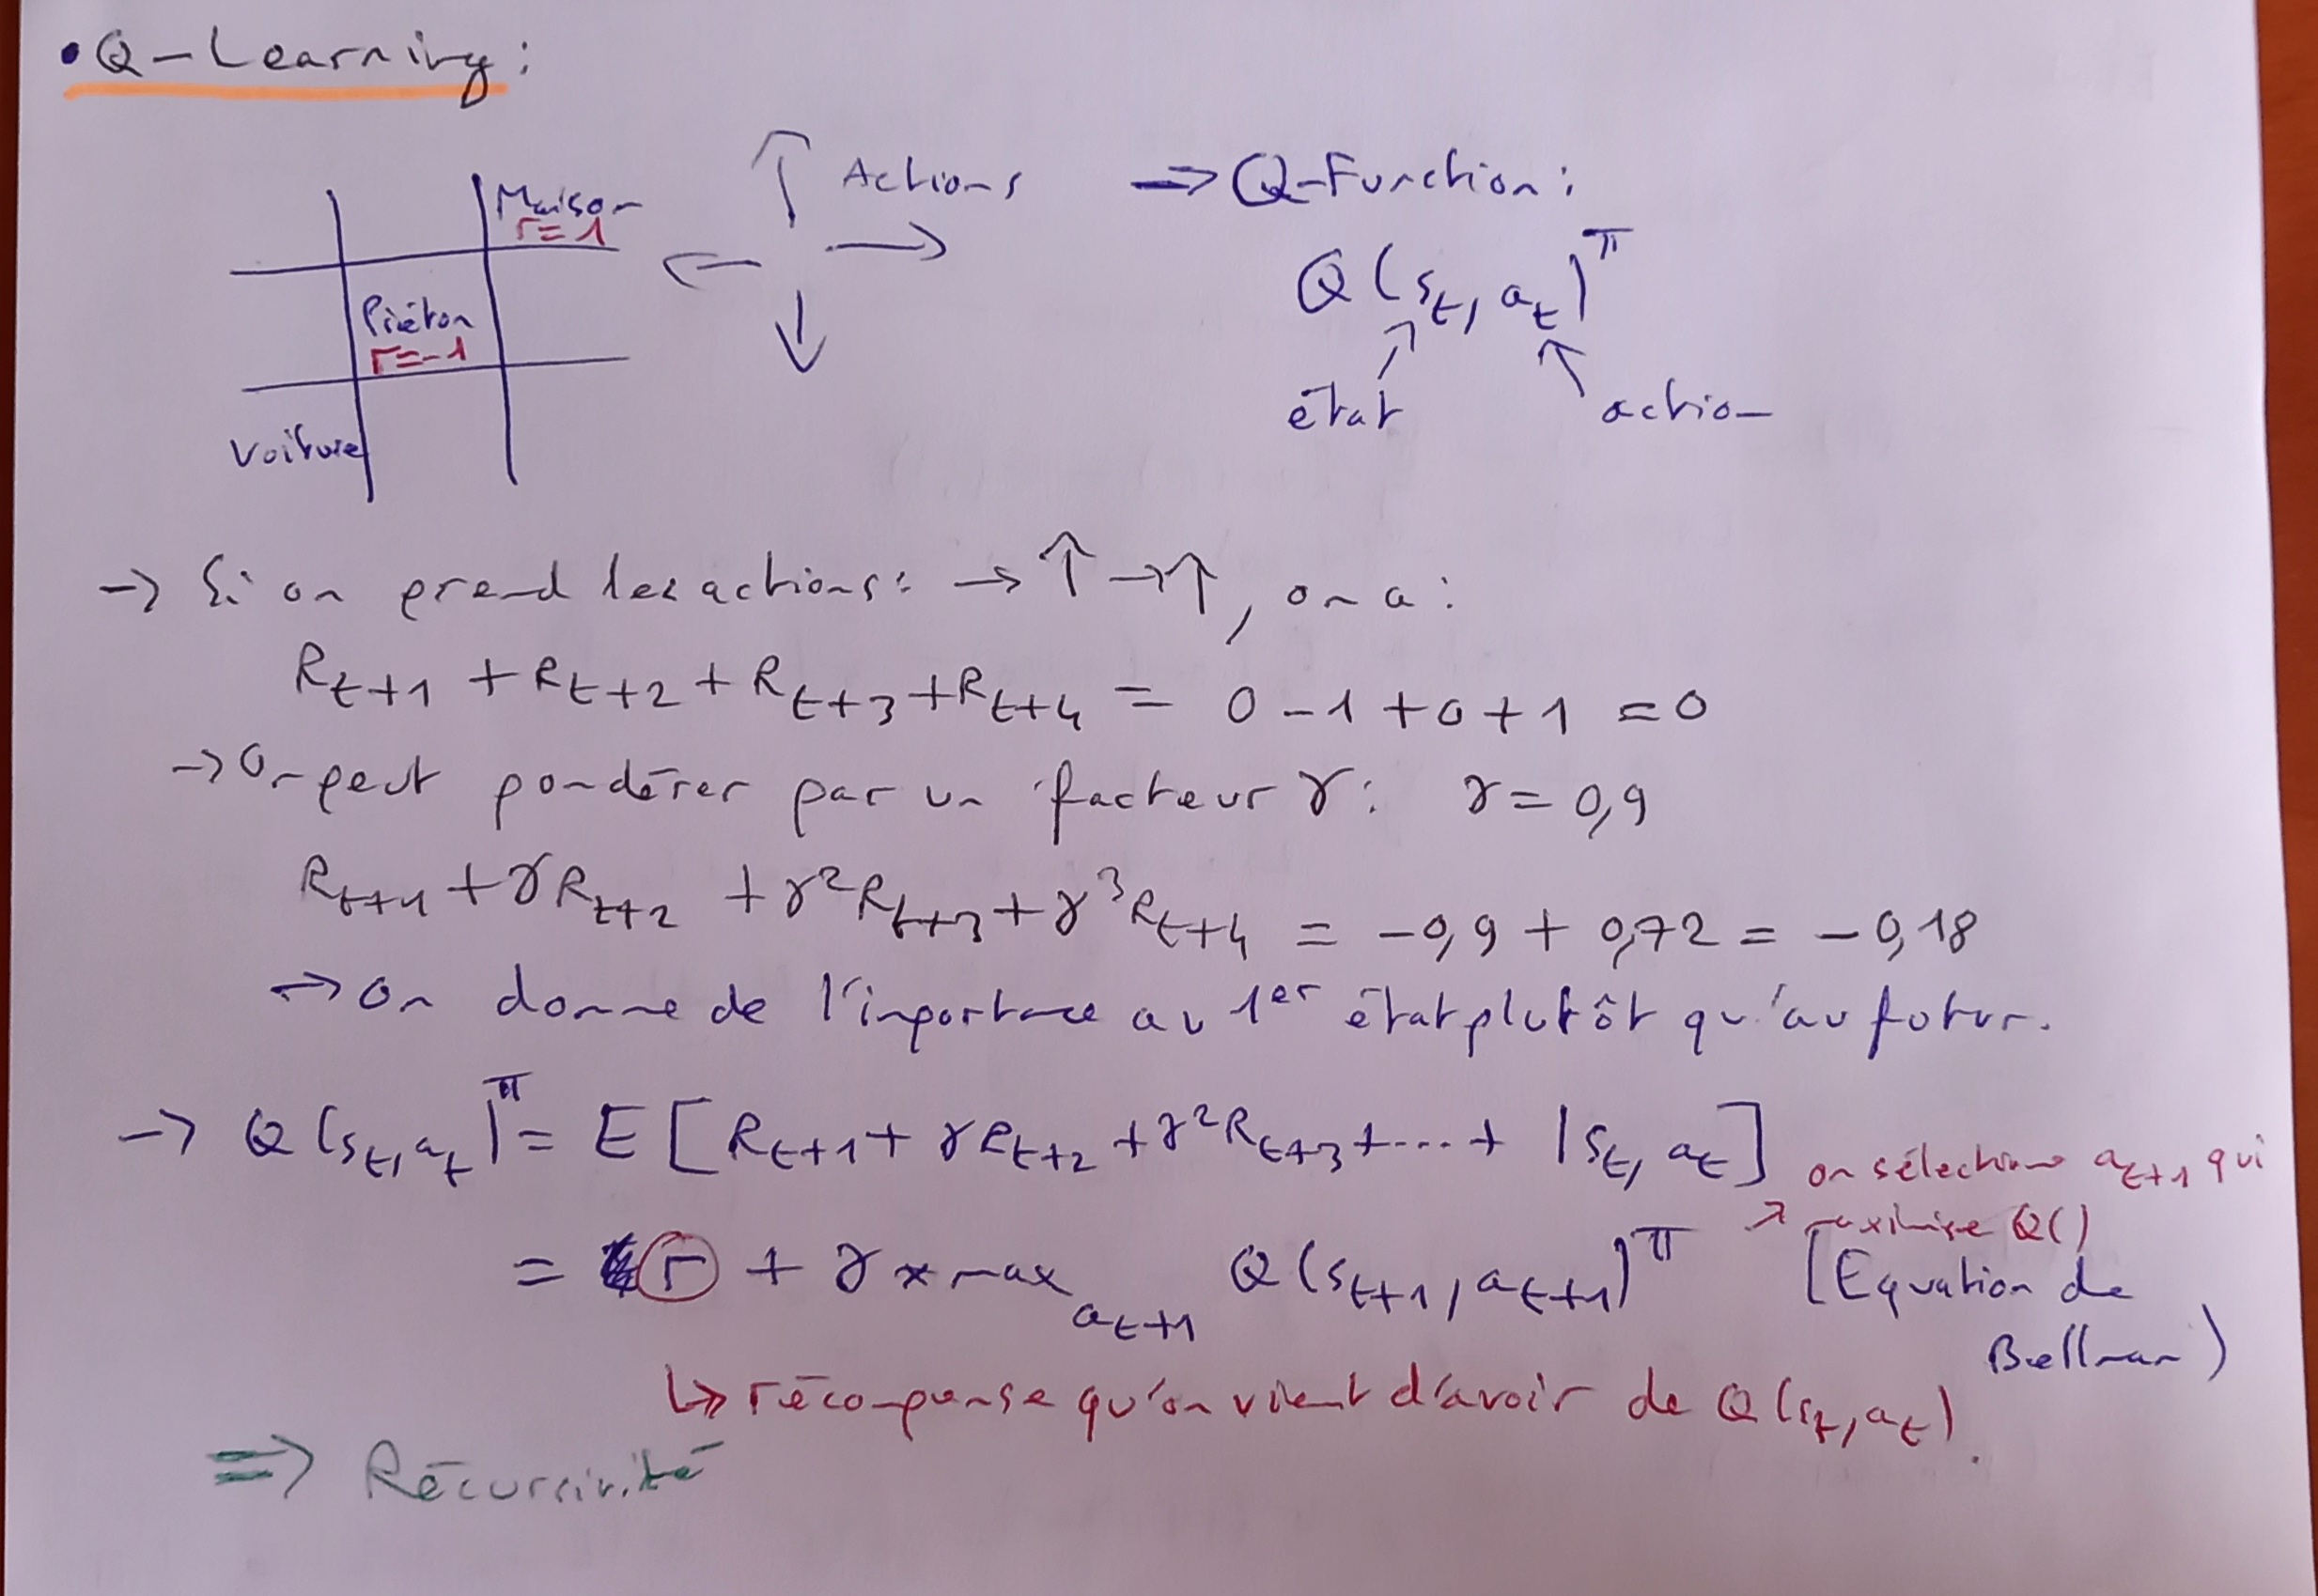 • Q-Learning :
Maison
r=1
Piéton
r=-1
Voiture
↑ Actions
← →
↓
⇒ Q-Function :
Q(s_t, a_t)^π
état
action
→ Si on prend les actions : → ↑ → ↑, on a :
R_t+1 + R_t+2 + R_t+3 + R_t+4 = 0 - 1 + 0 + 1 = 0
→ On peut pondérer par un facteur γ : γ = 0,9
R_t+1 + γR_t+2 + γ²R_t+3 + γ³R_t+4 = -0,9 + 0,72 = -0,18
→ On donne de l'importance au 1er état plutôt qu'au futur.
→ Q(s_t, a_t)^π = E[R_t+1 + γR_t+2 + γ²R_t+3 + .... + | s_t, a_t]
on sélectionne a_t+1 qui
↗ maximise Q()
= r + γ × max_a_t+1 Q(s_t+1, a_t+1)^π
[Equation de
Bellman)
↳ récompense qu'on vient d'avoir de Q(s_t, a_t).
⇒ Récursivité